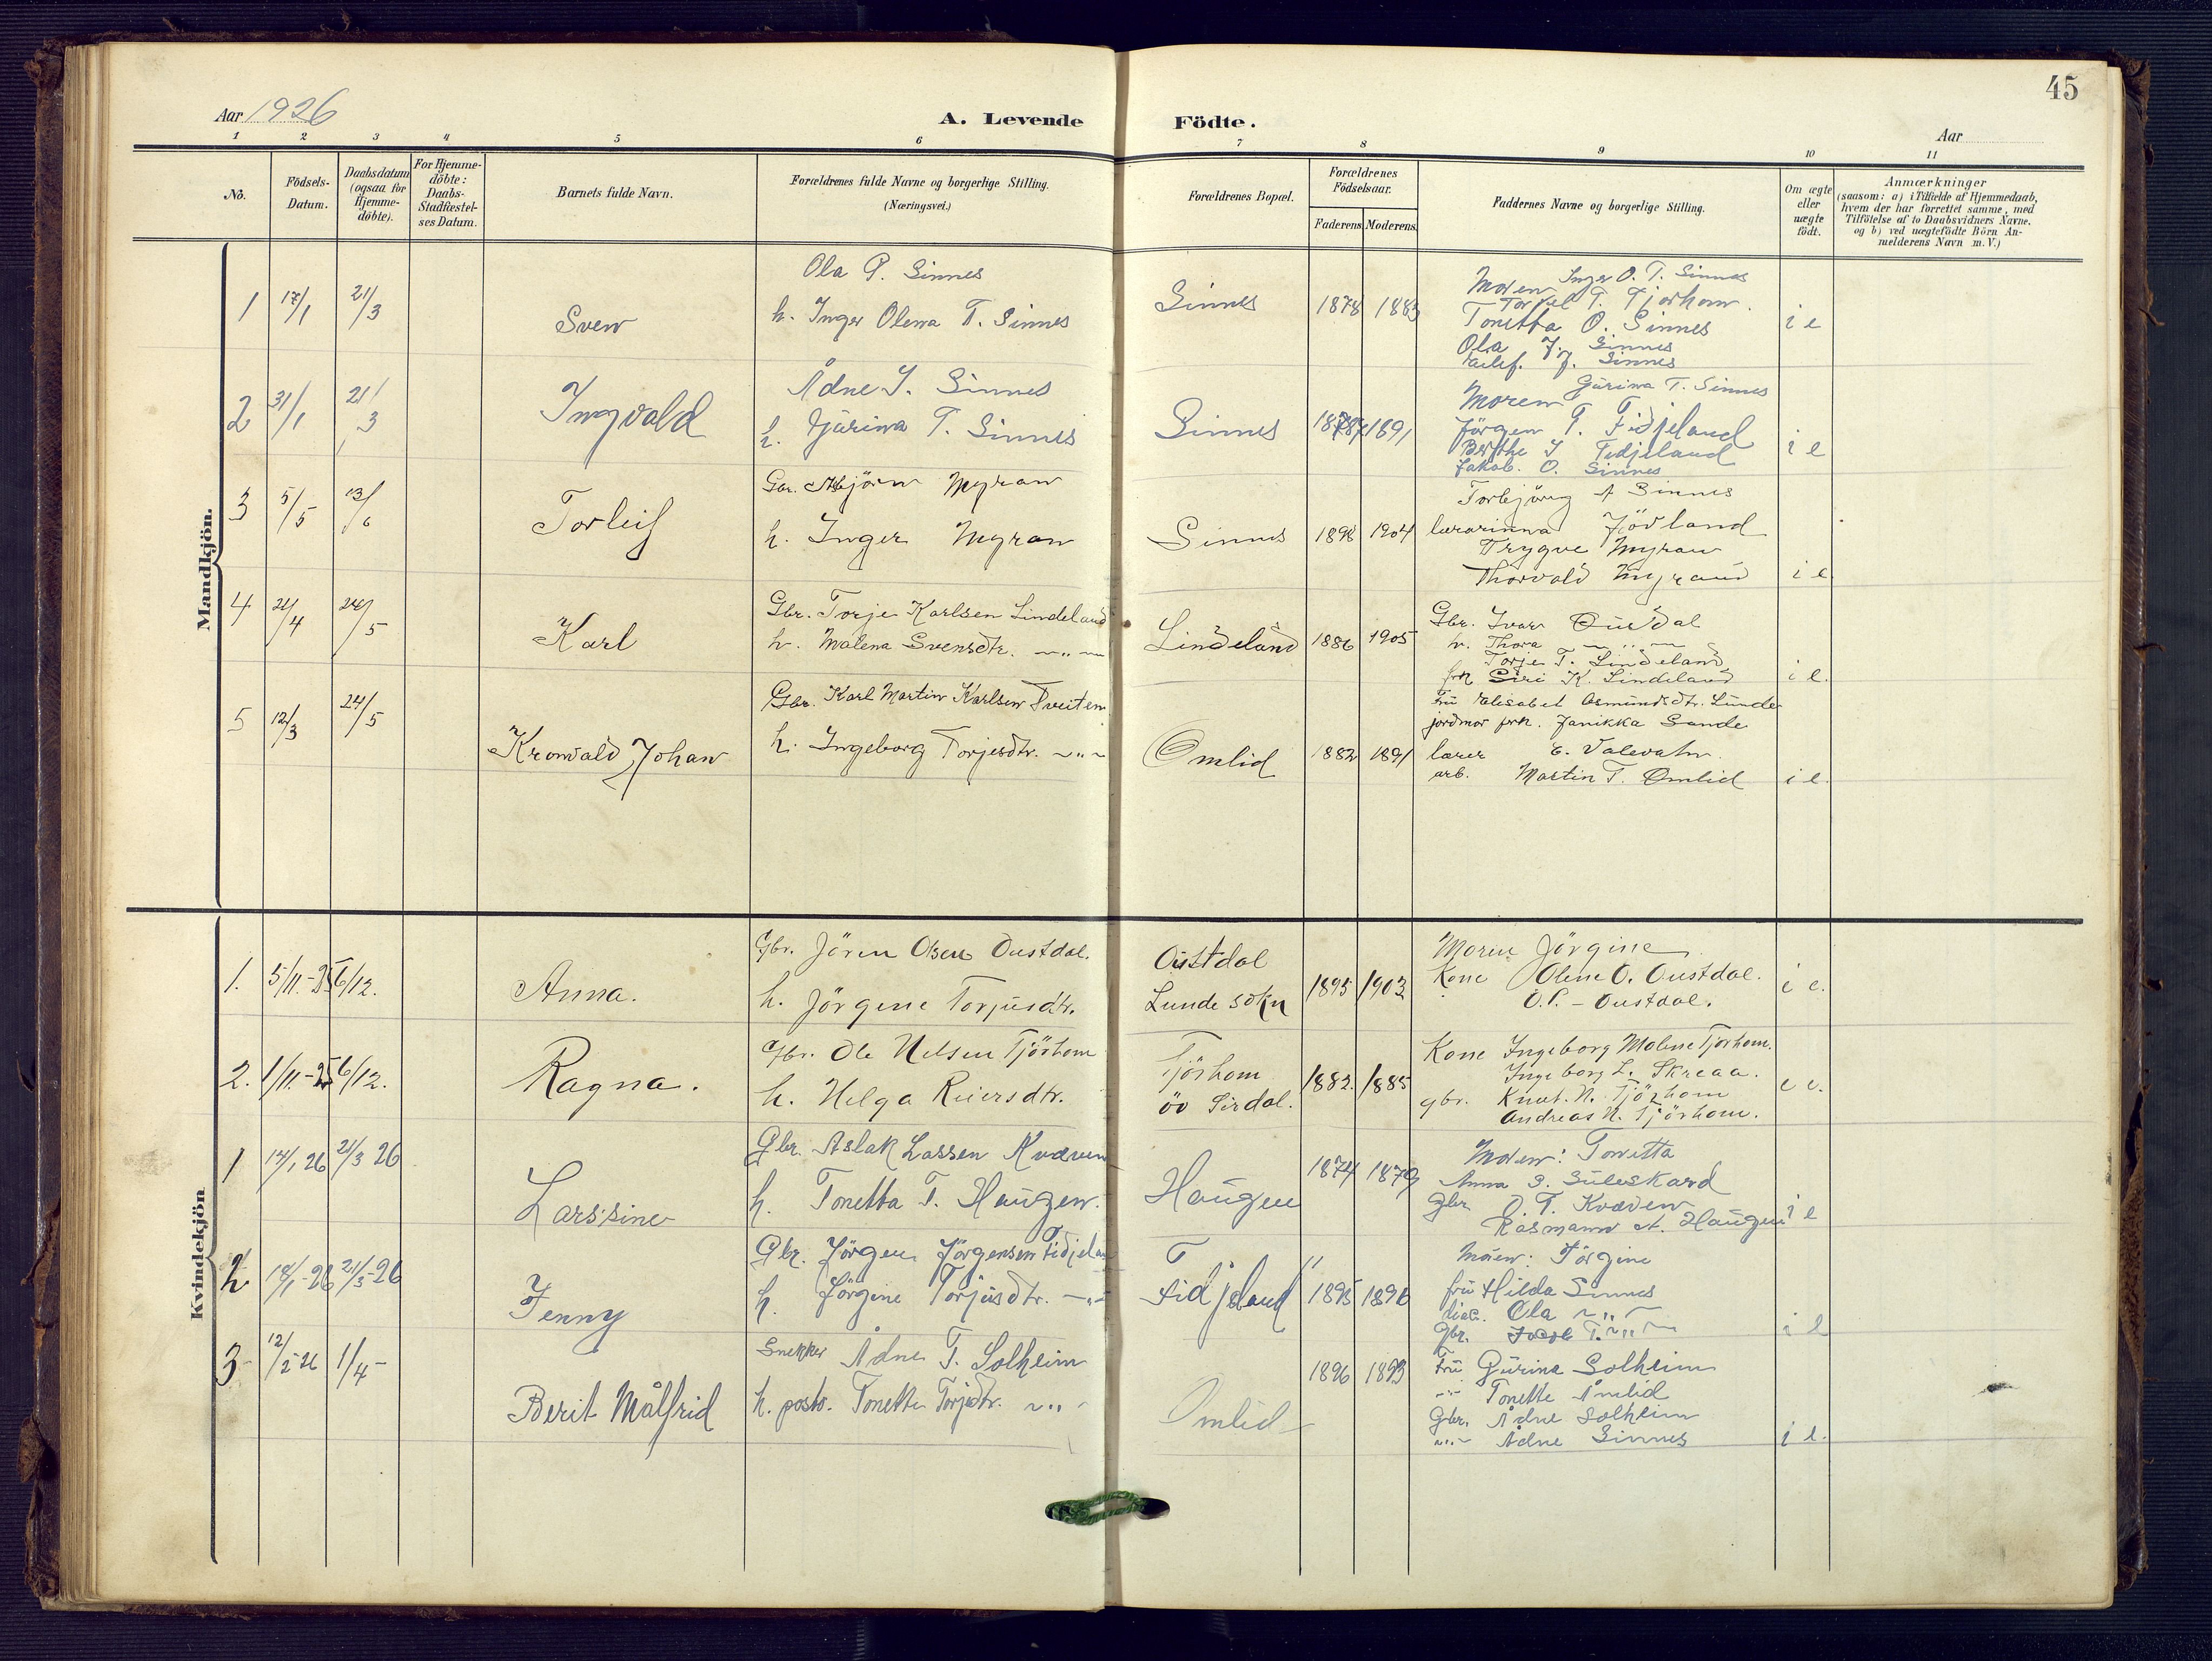 45
Aar 1926
A. Levende Födte.
Aar
1 2 3 4 5 6 7 8 9 10 11
No.
Födsels-Datum.
Daabsdatum (ogsaa for Hjemme-döbte).
For Hjemme-döbte: Daabs-Stadfæstel-ses Datum.
Barnets fulde Navn.
Forældrenes fulde Navne og borgerlige Stilling. (Næringsvei.)
Forældrenes Bopæl.
Forældrenes Födselsaar.
Faderens. Moderens.
Faddernes Navne og borgerlige Stilling.
Om ægte eller uægte födt.
Anmærkninger
(saasom: a) i Tilfælde af Hjemmedaab,
hvem der har forrettet samme, med
Tilföielse af to Daabsvidners Navne.
og b) ved uægtefödte Börn An-
melderens Navn m. V.)
Mandkjön.
1 17/1 21/3 Sven
Ola P. Sinnes
h. Inger Olena T. Sinnes
Sinnes 1878 1883
Moren Inger O. T. Sinnes
Torfel T. Tjorhom.
Tonetta O. Sinnes
Ola J. Sinnes
Eilef. J. Sinnes
i e
2 31/1 21/3 Ingvald
Ådne J. Sinnes
h. Gjurina T. Sinnes
Sinnes 1891
Moren Gurina T. Sinnes
Jörgen T. Fidjeland
Berthe J Fidjeland
Jakob. O. Sinnes
i e
3 5/5 13/6 Torleif
Gbr. Asbjörn Myran
h. Inger Myran
Sinnes 1898 1904
Torbjörg A Sinnes
lærarinna Jödland
Trygve Myran
Thorvald Myrand
i e.
4 21/4 24/5 Karl
Gbr. Torje Karlsen Lindeland
h. Malena Svensdtr. -"-
Lindeland 1886 1905
Gbr. Ivar Ousdal
h. Thora -"-
Torje T. Lindeland
frk Siri K. Lindeland
i e.
5 12/3 24/5 Kronvald Johan
Gbr. Karl Martin Karlsen Tveiten
h. Ingeborg Torjesdtr. -"-
Omlid 1882 1891
Fru Elisabet Osmundsdtr. Lunde
jordmor frk. Janikka Sande
lærer E. Valevatn.
arb. Martin T. Omlid
i e.
Kvindekjön
1. 5/11.-25 6/12. Anna.
Gbr. Jören Olsen Oustdal.
h. Jörgine Torjusdtr.
Oustdal
Lunde sokn
1895 1903
Moren Jörgine
Kone Olene O. Oustdal.
O.P. - Oustdal.
i e.
2. 1/11.-25 6/12. Ragna.
Gbr. Ole Nelsen Tjörhom
h. Helga Reiersdtr.
Tjörhom
öv Sirdal.
1882. 1885
Kone Ingeborg Malene Tjorhom.
Ingeborg L. Skreaa.
gbr. Knut. N. Tjörhom
Andreas N. Tjörhom.
e e.
1 14/1 26 21/3 26 Larssine
Gbr. Aslak Lassen Kvæven
h. Tonetta T. Haugen.
Haugen 1874 1879
Moren: Tonetta
Anna S. Suleskard
Gbr O. T. Kvæven
Rasmann A. Haugen
i e
2 18/1-26 21/3-26 Jenny
Gbr. Jörgen Jörgensen Fidjeland
h. Jörgine Torjusdtr. -"-
Fidjeland 1895 1896
Moren: Jörgine
fru Hilda Sinnes
Ola -"-
Gbr. Jacob T. -"-
i e
3 12/2 26 1/4 - Berit Målfrid
Snekker Ådne T. Solheim
h. posto. Tonette Torjedtr. -"-
Omlid 1896 1893
Fru Gurina Solheim
-"- Tonette Åmlid
Gbr. Ådne Solheim
-"- Ådne Sinnes
i e.